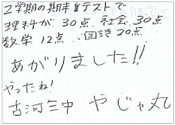 2学期の期末テストで
理科が 30点、社会 30点
数学 12点 、国語 20点
あがりました!!
やったね!
古河三中 やじゃ丸